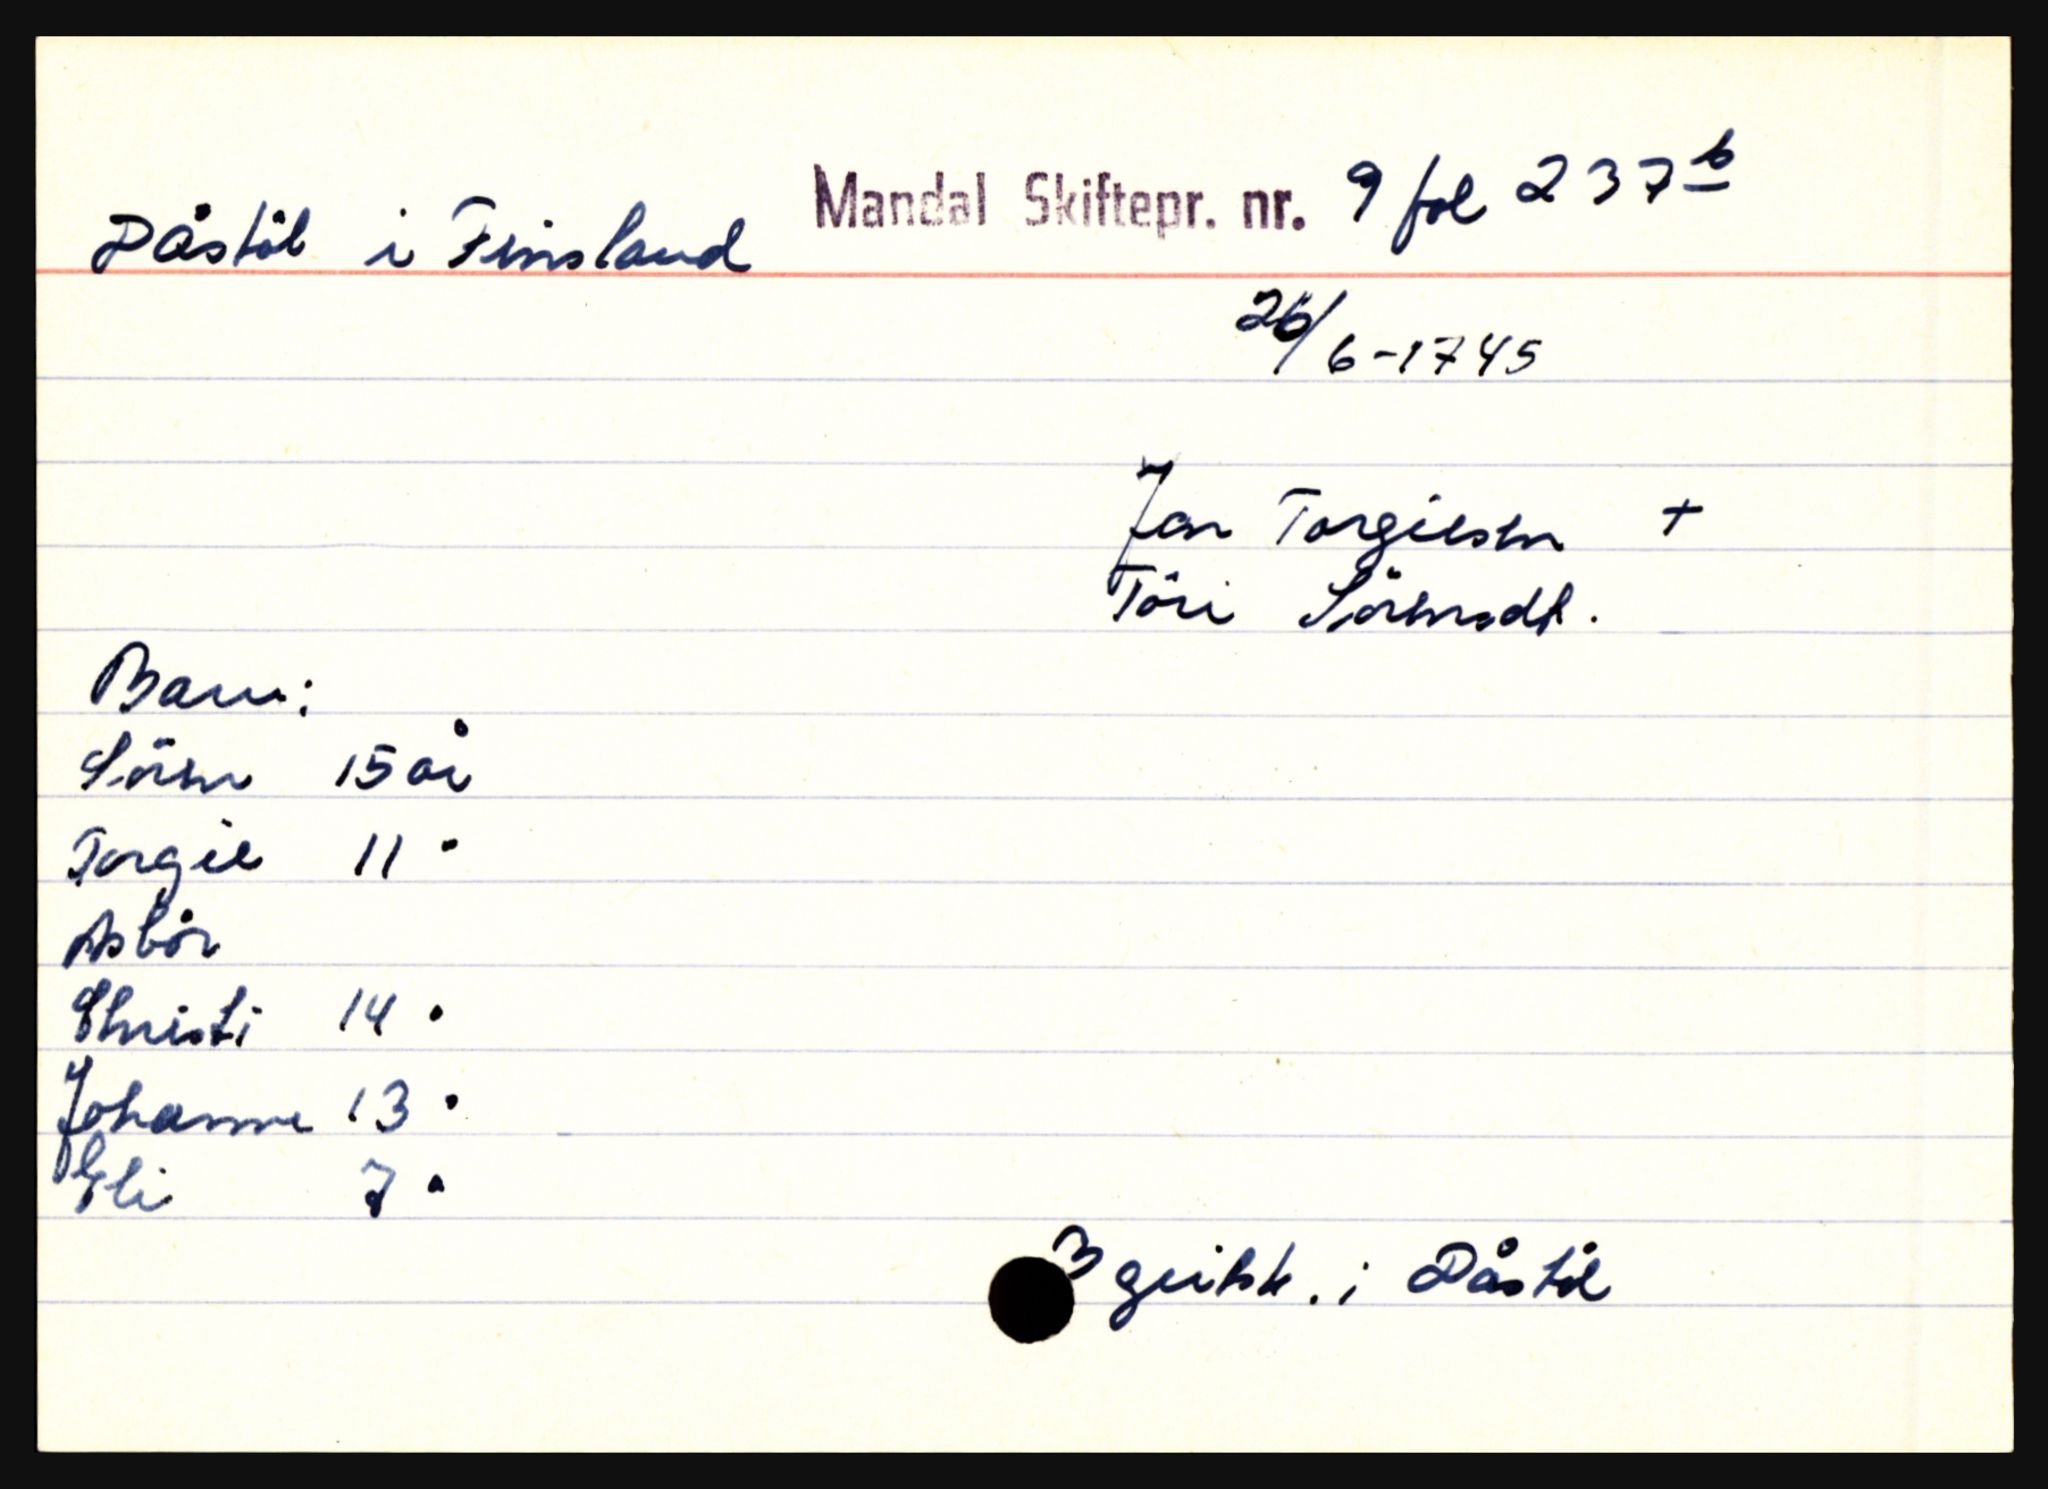 Dåstöl i Finsland Mandal Skiftepr. nr. 9 fol 237b
26/6-1745
Jan Torgilsen +
Töri Sörensdt.
Barn:
Sören 15 år
Torgil 11 "
Asbör
Christi 14 "
Johanne 13 "
Eli 7 "
3 i Dåstöl